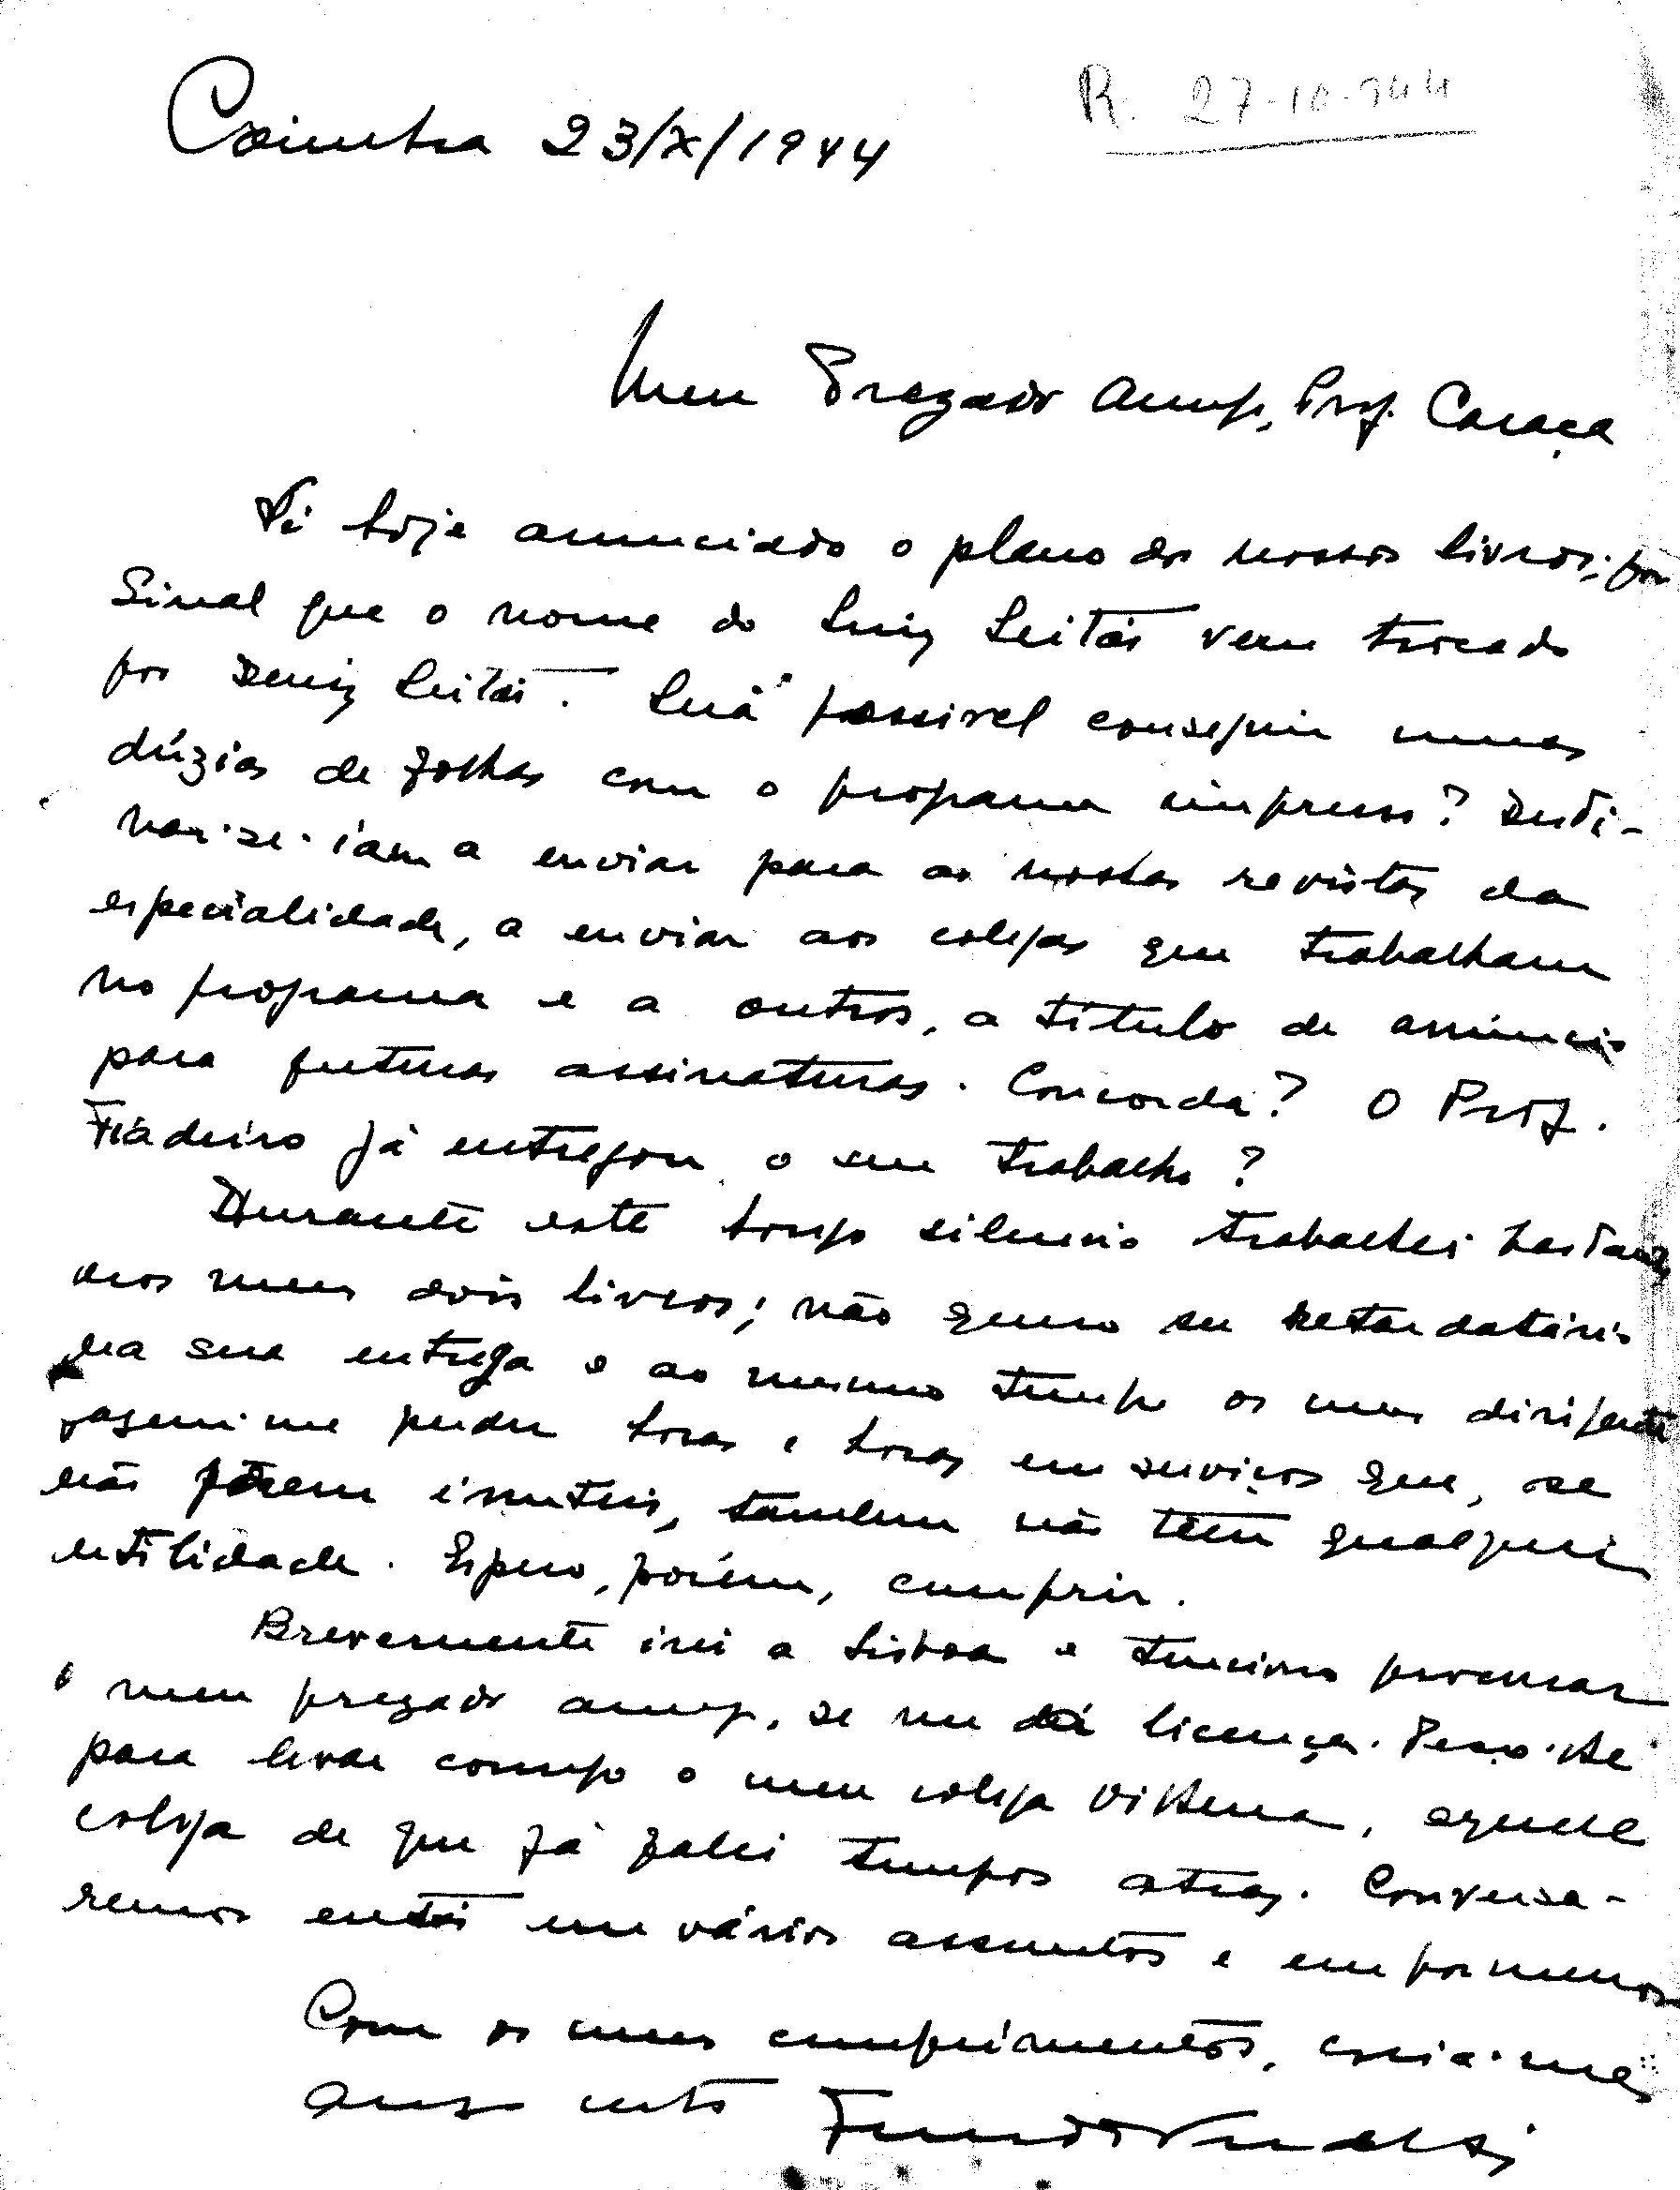 Coimbra 23/X/1944
R. 27-10-944
Meu Prezado Amigo, Prof. Caraça
Vi hoje anunciado o plano dos nossos livros; por
Sinal que o nome do Luiz Leitão vem trocado
por Deniz Leitão. Será possível conseguir umas
dúzias de folhas com o programa impresso? Desti-
nar-se-iam a enviar para as nossas revistas da
especialidade, a enviar aos colegas que trabalham
no programa e a outros, a título de anúncio
para futuras assinaturas. Concorda? O Prof.
Fiadeiro já entregou o seu trabalho?
Durante este longo silencio trabalhei bastante
nos meus dois livros; não quero ser retardatário
na sua entrega e ao mesmo tempo os meus dirigentes
fazem-me perder horas e horas em serviços que, se
não fôrem inuteis, tambem não têm qualquer
utilidade. Espero, porém, cumprir.
Brevemente irei a Lisboa e tenciono procurar
o meu prezado amigo, se me dá licença. Peço-lhe
para levar comigo o meu colega Vilhena, aquele
colega de que já falei tempos atraz. Conversa-
remos então em vários assuntos e em pormenor
Com os meus cumprimentos, creia-me
Amgo certo